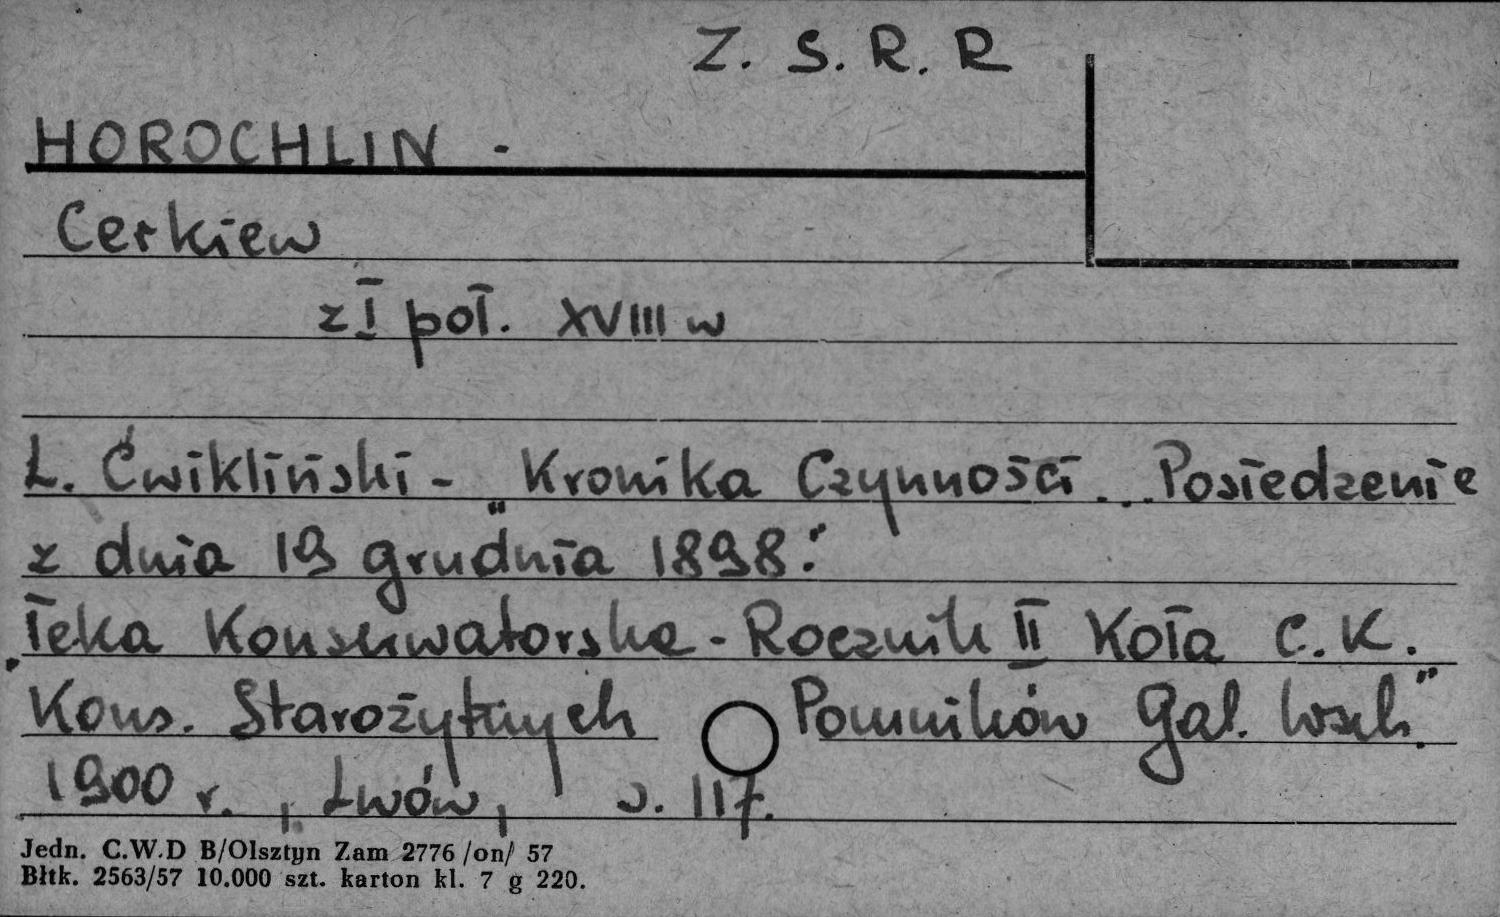 Z. S. R. R
HOROCHLIN -
Cerkiew
z I poł. XVIII w
L. Ćwikliński - „Kronika Czynności... Posiedzenie
z dnia 19 grudnia 1898."
„Teka Konserwatorska - Rocznik II Koła C. K.
Kons. Starożytnych Pomników Gal. Wsch."
1900 r., Lwów, s. 117.
Jedn. C.W.D B/Olsztyn Zam 2776 /on/ 57
Błtk. 2563/57 10.000 szt. karton kl. 7 g 220.